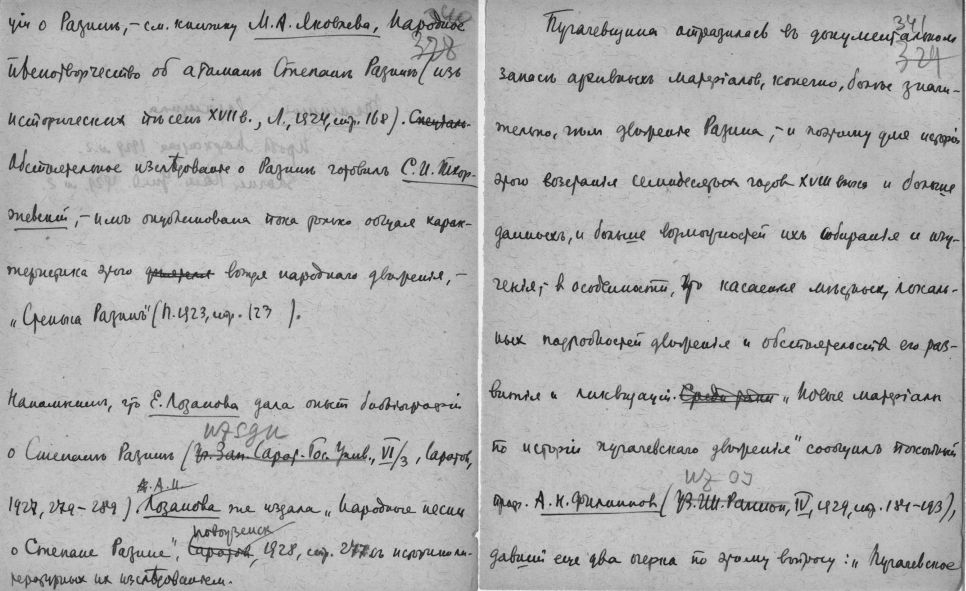 ціи о Разинѣ, – см. книжку М. А. Яковлева, Народное
340
328
пѣснотворчество об атаманѣ Степанѣ Разинѣ (изъ
исторических пѣсен XVII в., Л., 1924, стр. 168).
Обстоятельное изслѣдованіе о Разинѣ готовилъ С. И. Тхор-
жевскій, – имъ опубликована пока только общая харак-
теристика этого вождя народнаго движенія, –
„Стенька Разинъ" (П. 1923, стр. 123 ).
Напомнимъ, что Е. Лозанова дала опытъ библіографіи
о Степанѣ Разинѣ (Уч. Зап. Сарат. Гос. Унив., VI/3, Саратов,
1927, 279–289). А. Н.
Лозанова же издала „Народные песни
о Степане Разине",
Саратов, 1928, стр. с историко-ли-
тературных их изслѣдованіем.
341
329
Пугачевщина отразилась въ документальном
запасѣ архивныхъ матеріалов, конечно, болѣе значи-
тельно, чѣм движеніе Разина, – и поэтому для исторіи
этого возстанія семидесятых годов XVIII вѣка и больше
данныхъ, и больше возможностей ихъ собиранія и изу-
ченія, – в особенности, что касается мѣстных, локаль-
ных подробностей движенія и обстоятельств его раз-
витія и ликвидаціи. Среди „Новые матеріалы
по исторіи пугачевского движенія" сообщилъ покойный
проф. А. Н. Филиппов (IV, 1929, стр. 181–193),
давшій еще два очерка по этому вопросу: „Пугачевское